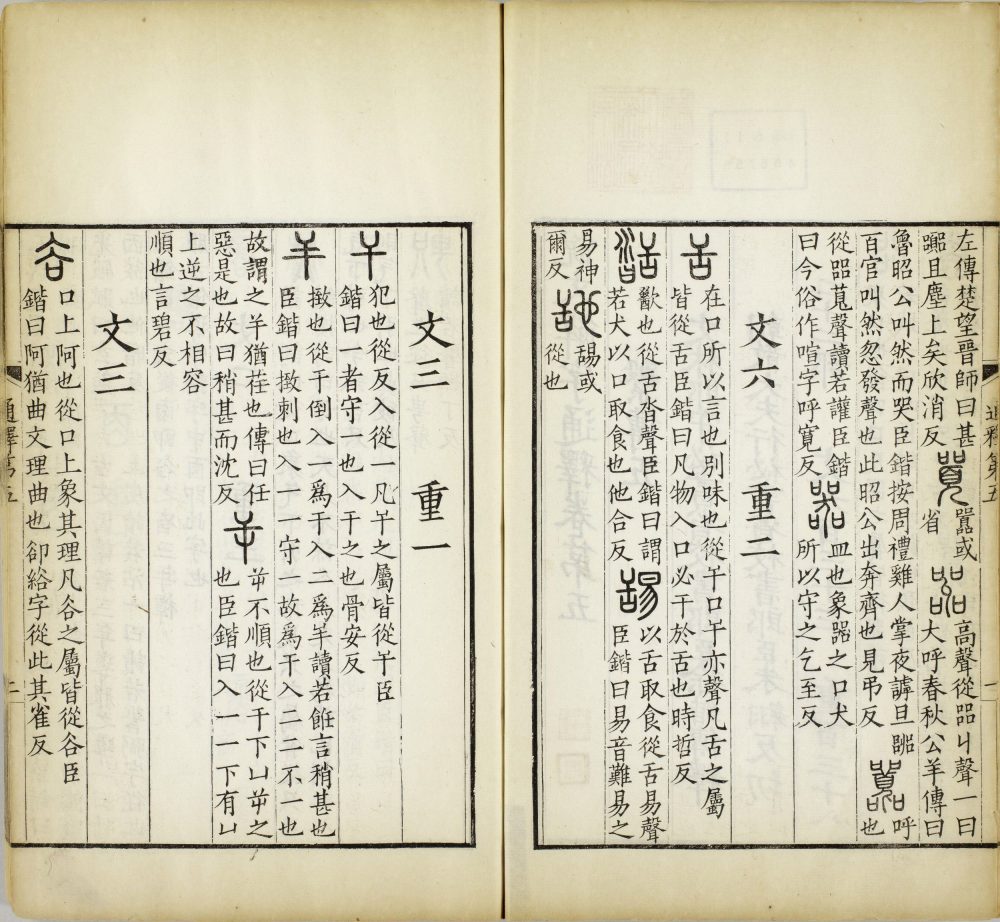 左傳楚望晉師曰甚
囂且塵上矣欣消反 囂或省 高聲從㗊丩聲一曰大呼春秋公羊傳曰
魯昭公叫然而哭臣鍇按周禮雞人掌夜嘑旦嘂
百官叫然忽發聲也此昭公出奔齊也見弔反 呼也
從㗊莧聲讀若讙臣鍇
曰今俗作喧字呼寬反 器 皿也象器之口犬所以守之乞至反
文六 重二
舌 在口所以言也別味也從干口干亦聲凡舌之屬
皆從舌臣鍇曰凡物入口必干於舌也時哲反
歠也從舌沓聲臣鍇曰謂
若犬以口取食也他合反 以舌取食從舌易聲臣鍇曰易音難易之
易神
爾反 䑛或從也
文三 重一
干 犯也從反入從一凡干之屬皆從干臣
鍇曰一者守一也入干之也骨安反
撖也從干倒入一爲干入二爲𢆉讀若飪言稍甚也
臣鍇曰撖刺也入一一守一故爲干入二二不一也
故謂之𢆉猶荏也傳曰任
惡是也故曰稍甚而沈反 屰 不順也從干下凵屰之也臣鍇曰入一一下有凵
上逆之不相容
順也言碧反
文三
谷 口上阿也從口上象其理凡谷之屬皆從谷臣
鍇曰阿猶曲文理曲也卻綌字從此其雀反
通釋第五
一
通釋第五
二